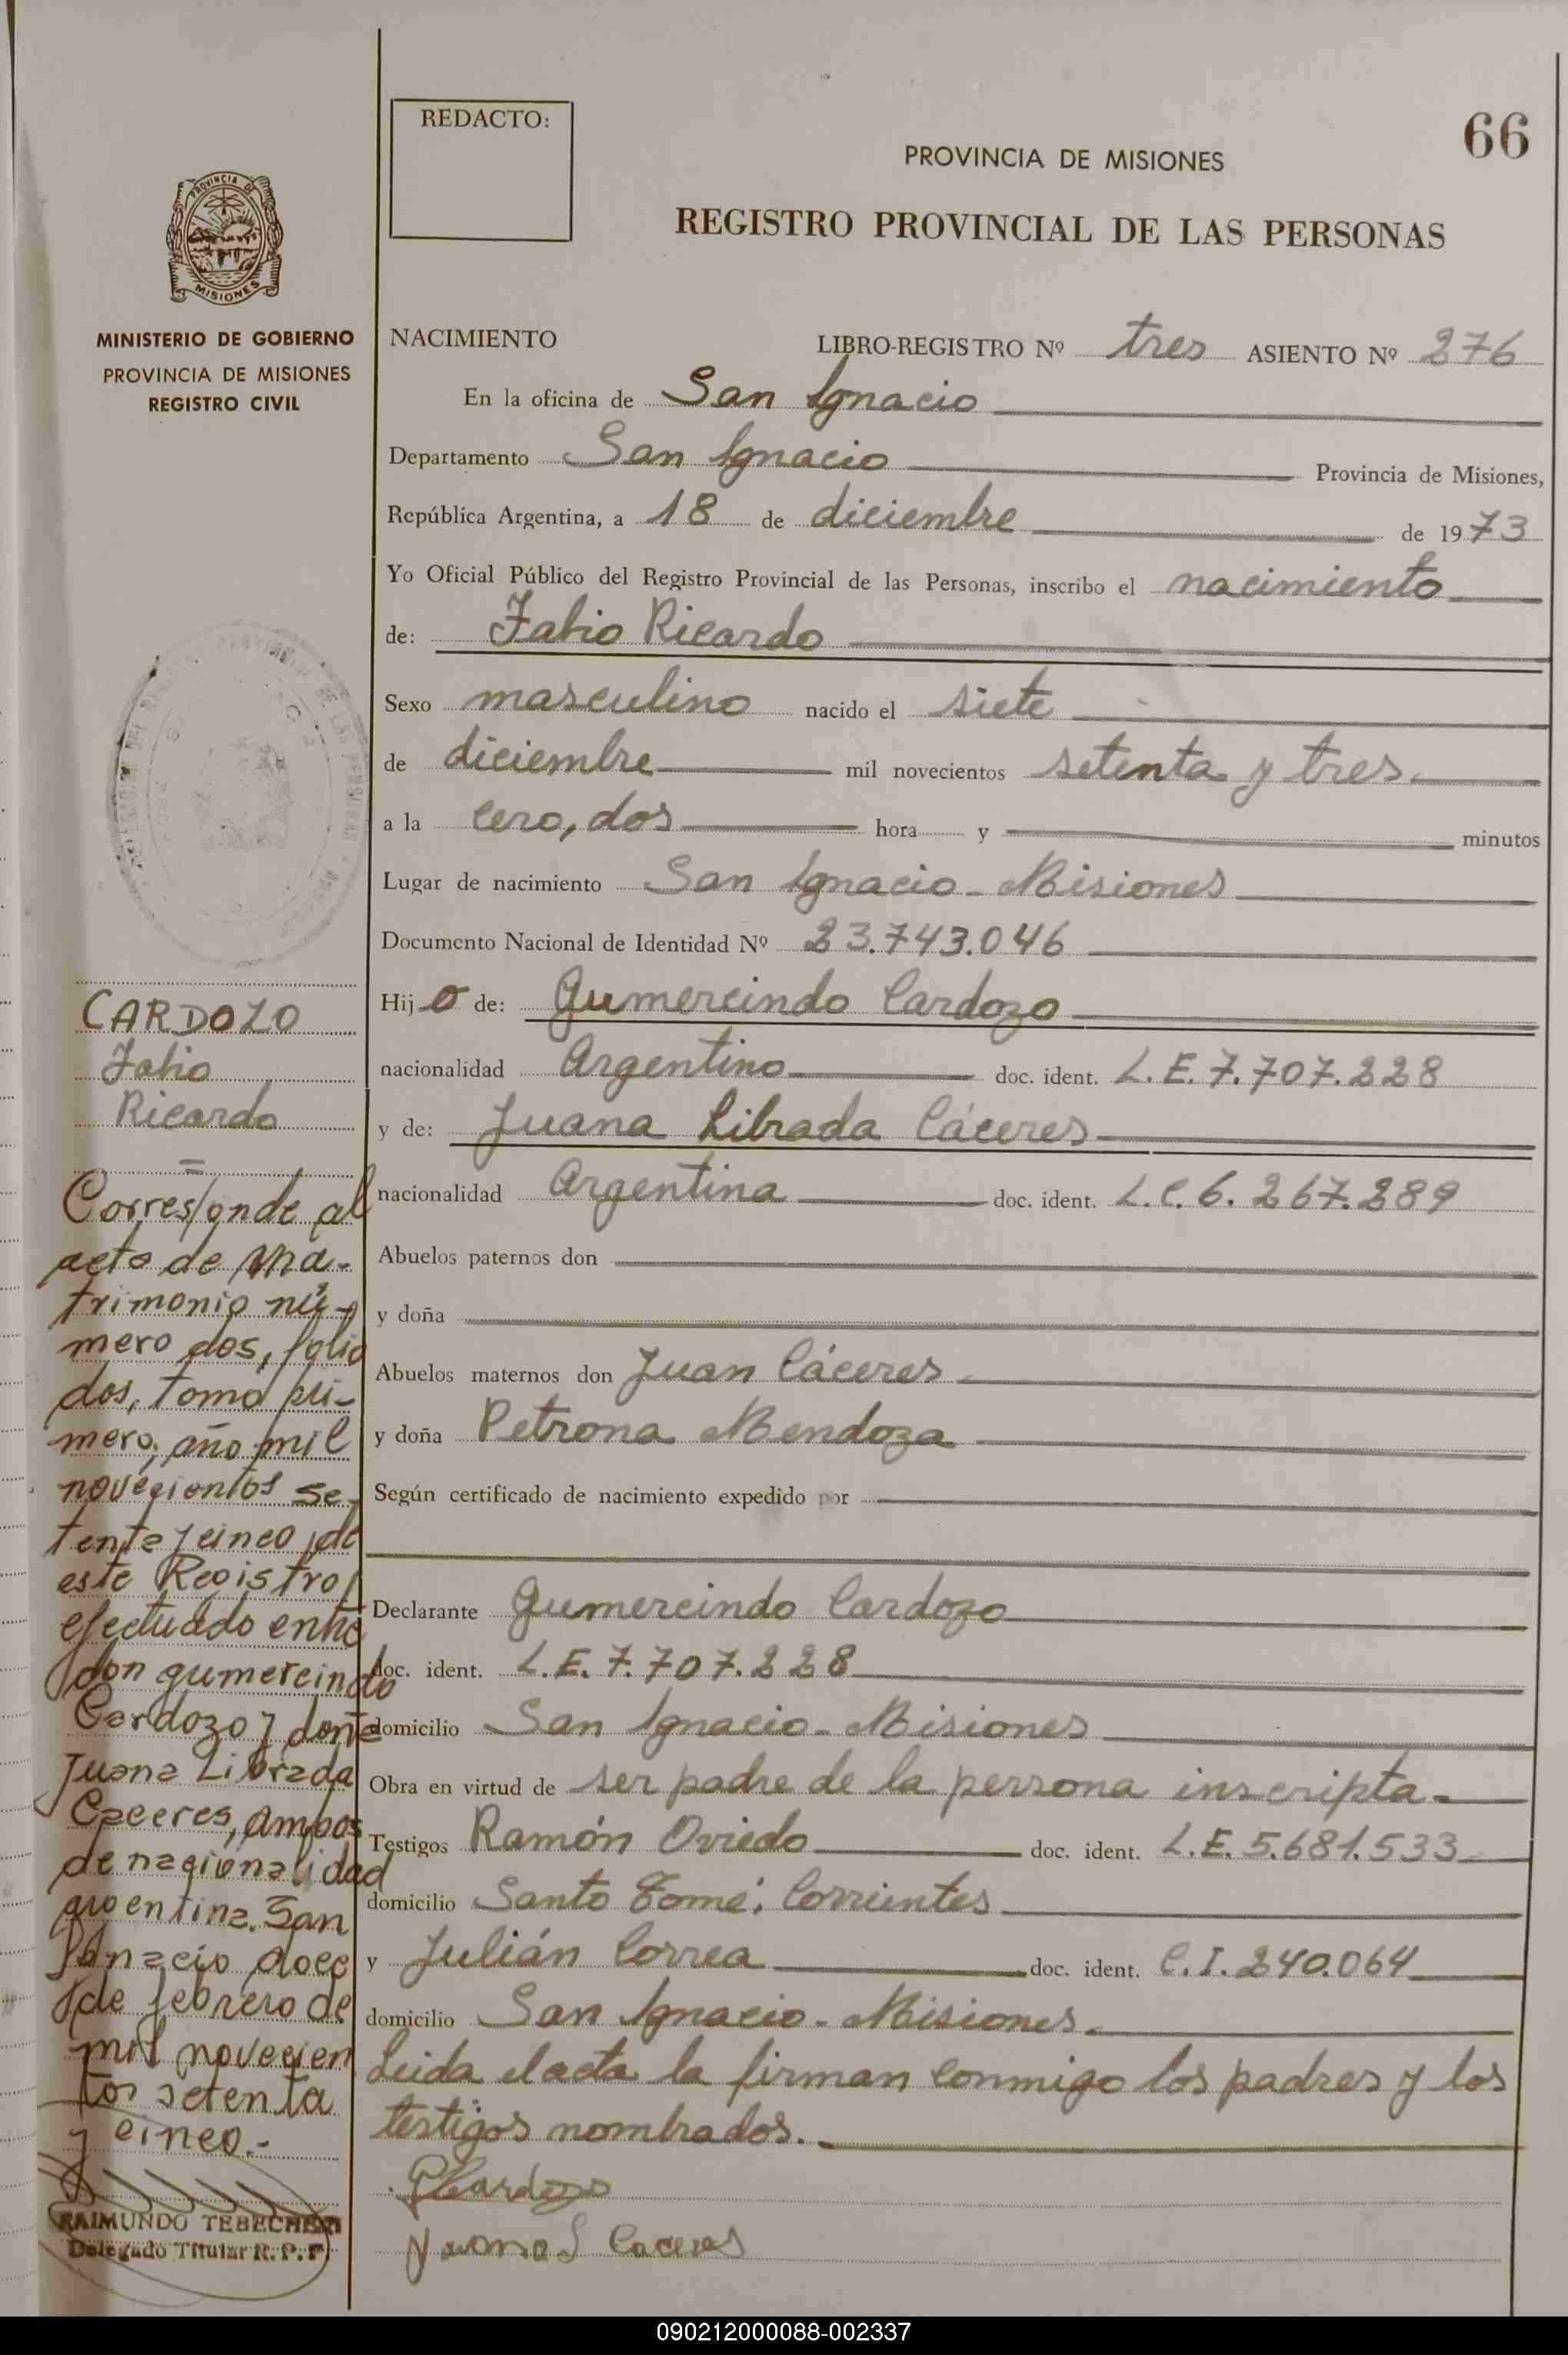 REDACTO:
66
PROVINCIA DE MISIONES
REGISTRO PROVINCIAL DE LAS PERSONAS
PROVINCIA DE
MISIONES
MINISTERIO DE GOBIERNO
PROVINCIA DE MISIONES
REGISTRO CIVIL
NACIMIENTO LIBRO-REGISTRO Nº tres ASIENTO Nº 276
En la oficina de San Ignacio
Departamento San Ignacio Provincia de Misiones,
República Argentina, a 18 de diciembre de 1973
Yo Oficial Público del Registro Provincial de las Personas, inscribo el nacimiento
de: Fabio Ricardo
Sexo masculino nacido el siete
de diciembre mil novecientos setenta y tres.
a la cero, dos hora y minutos
Lugar de nacimiento San Ignacio - Misiones
Documento Nacional de Identidad Nº 23.743.046
Hijo de: Gumercindo Cardozo
nacionalidad Argentino doc. ident. L.E. 7.707.228
y de: Juana Librada Cáceres
nacionalidad Argentina doc. ident. L.C. 6.267.289
Abuelos paternos don
y doña
Abuelos maternos don Juan Cáceres
y doña Petrona Mendoza
Según certificado de nacimiento expedido por
Declarante Gumercindo Cardozo
doc. ident. L.E. 7.707.228
domicilio San Ignacio - Misiones
Obra en virtud de ser padre de la persona inscripta.
Testigos Ramón Oviedo doc. ident. L.E. 5.681.533
domicilio Santo Tomé. Corrientes
y Julián Correa doc. ident. C.I. 240.064
domicilio San Ignacio - Misiones.
Leida el acta la firman conmigo los padres y los
testigos nombrados.
GCardozo
Juana L Caceres
CARDOZO
Fabio
Ricardo
=
Corresponde al
acto de Ma-
trimonio nú-
mero dos, folio
dos, tomo pri-
mero, año mil
novecientos se-
tenta y cinco, de
este Registro,
efectuado entre
don gumercindo
Cardozo y doña
Juana Librada
Caceres, ambos
de nacionalidad
argentina. San
Ignacio doce
de febrero de
mil novecien
tos setenta
y cinco.-
RAIMUNDO TEBECHERI
Delegado Titular R. P. P.
090212000088-002337